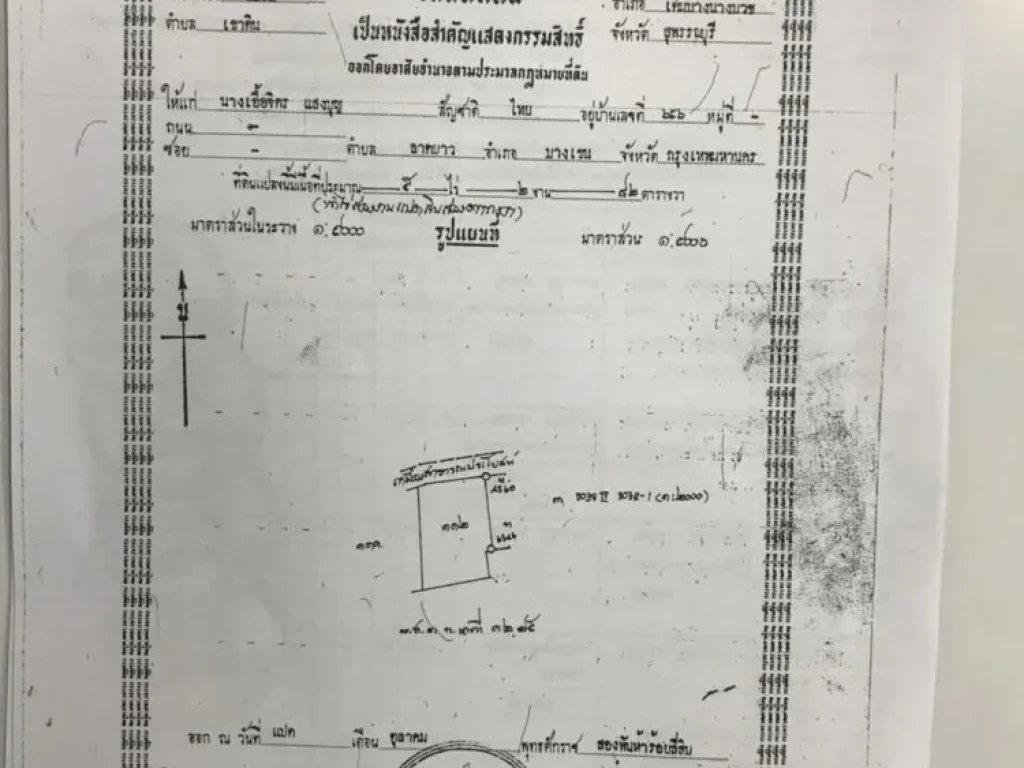 อำเภอ เดิมบางนางบวช
ตำบล เขาดิน เป็นหนังสือสำคัญแสดงกรรมสิทธิ์ จังหวัด สุพรรณบุรี
ออกโดยอาศัยอำนาจตามประมวลกฎหมายที่ดิน
ให้แก่ นางเอื้อจิตร แสงบุญ สัญชาติ ไทย อยู่บ้านเลขที่ ๖๕๖ หมู่ที่ -
ถนน -
ซอย - ตำบล ลาดยาว อำเภอ บางเขน จังหวัด กรุงเทพมหานคร
ที่ดินแปลงนี้มีเนื้อที่ประมาณ ๕ ไร่ ๒ งาน ๘๒ ตารางวา
(ห้าไร่สองงานแปดสิบสองตารางวา)
มาตราส่วนในระวาง ๑:๔๐๐๐ รูปแผนที่ มาตราส่วน ๑:๔๐๐๐
น
เหมืองสาธารณประโยชน์
๑๑๒
ออก ณ วันที่ แปด เดือน ตุลาคม พุทธศักราช สองพันห้าร้อยสี่สิบ